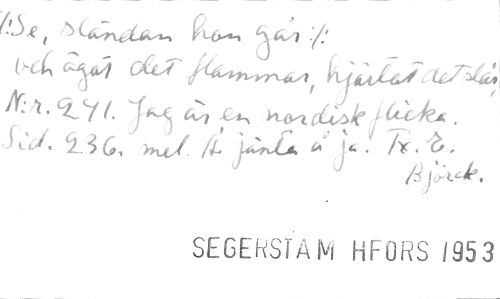 /:Se, sländan hon går:/:
och ögat det flammar, hjärtat det slår,
N:r. 241. Jag är en nordisk flicka.
Sid. 236. mel. Å jänta å ja. Tx. E.
Björck.
SEGERSTAM HFORS 1953